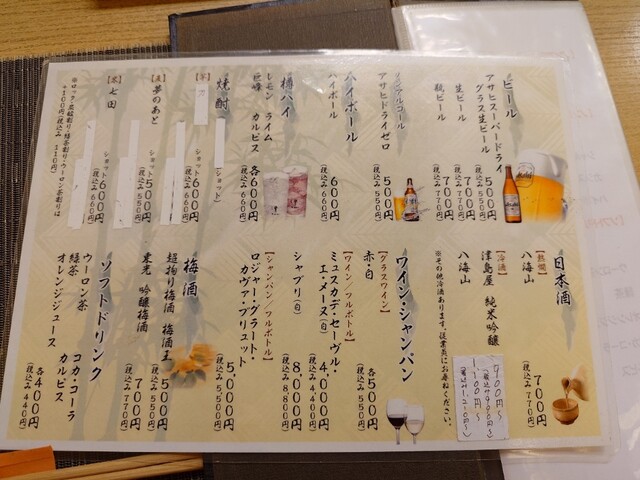 ビール
アサヒスーパードライ
グラス生ビール 500円
(税込み 550円)
生ビール 700円
(税込み 770円)
瓶ビール 700円
(税込み 770円)
ノンアルコール
アサヒドライゼロ 500円
(税込み 550円)
ハイボール
ハイボール 600円
(税込み 660円)
樽ハイ
レモン ライム
巨峰 カルピス 各600円
(税込み 660円)
焼酎
ショット
ショット 600円
(税込み 660円)
【麦】
夢のあと ショット 500円
(税込み 550円)
ショット 600円
(税込み 660円)
七田 ショット 600円
(税込み 660円)
※ロック・炭酸割り・緑茶割り・ウーロン茶割りは
+100円(税込み 110円)
日本酒
【熱燗】
八海山 700円
(税込み 770円)
【冷酒】
津島屋 純米吟醸 900円〜
(税込み990円〜)
八海山 1,100円〜
(税込み1,210円〜)
※その他冷酒あります。従業員にお尋ねください。
ワイン・シャンパン
【グラスワイン】
赤・白 各500円
(税込み 550円)
【ワイン/フルボトル】
ミュスカデ・セーヴル・
エ・メーヌ(白) 4,000円
(税込み4,400円)
シャブリ(白) 8,000円
(税込み8,800円)
【シャンパン/フルボトル】
ロジャー・グラート・
カヴァ・ブリュット 5,000円
(税込み5,500円)
梅酒
超拘り梅酒 梅酒王 500円
(税込み 550円)
東光 吟醸梅酒 700円
(税込み 770円)
ソフトドリンク
ウーロン茶 コカ・コーラ
緑茶 カルピス
オレンジジュース 各400円
(税込み 440円)